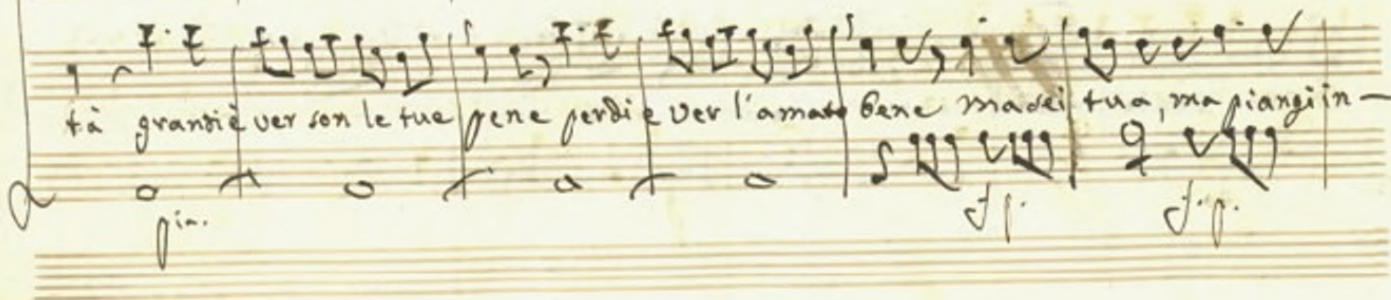 tà grandi è ver son le tue pene perdi è ver l'amato bene ma sei tua, ma piangi in-
pia.
f. p. f. p.